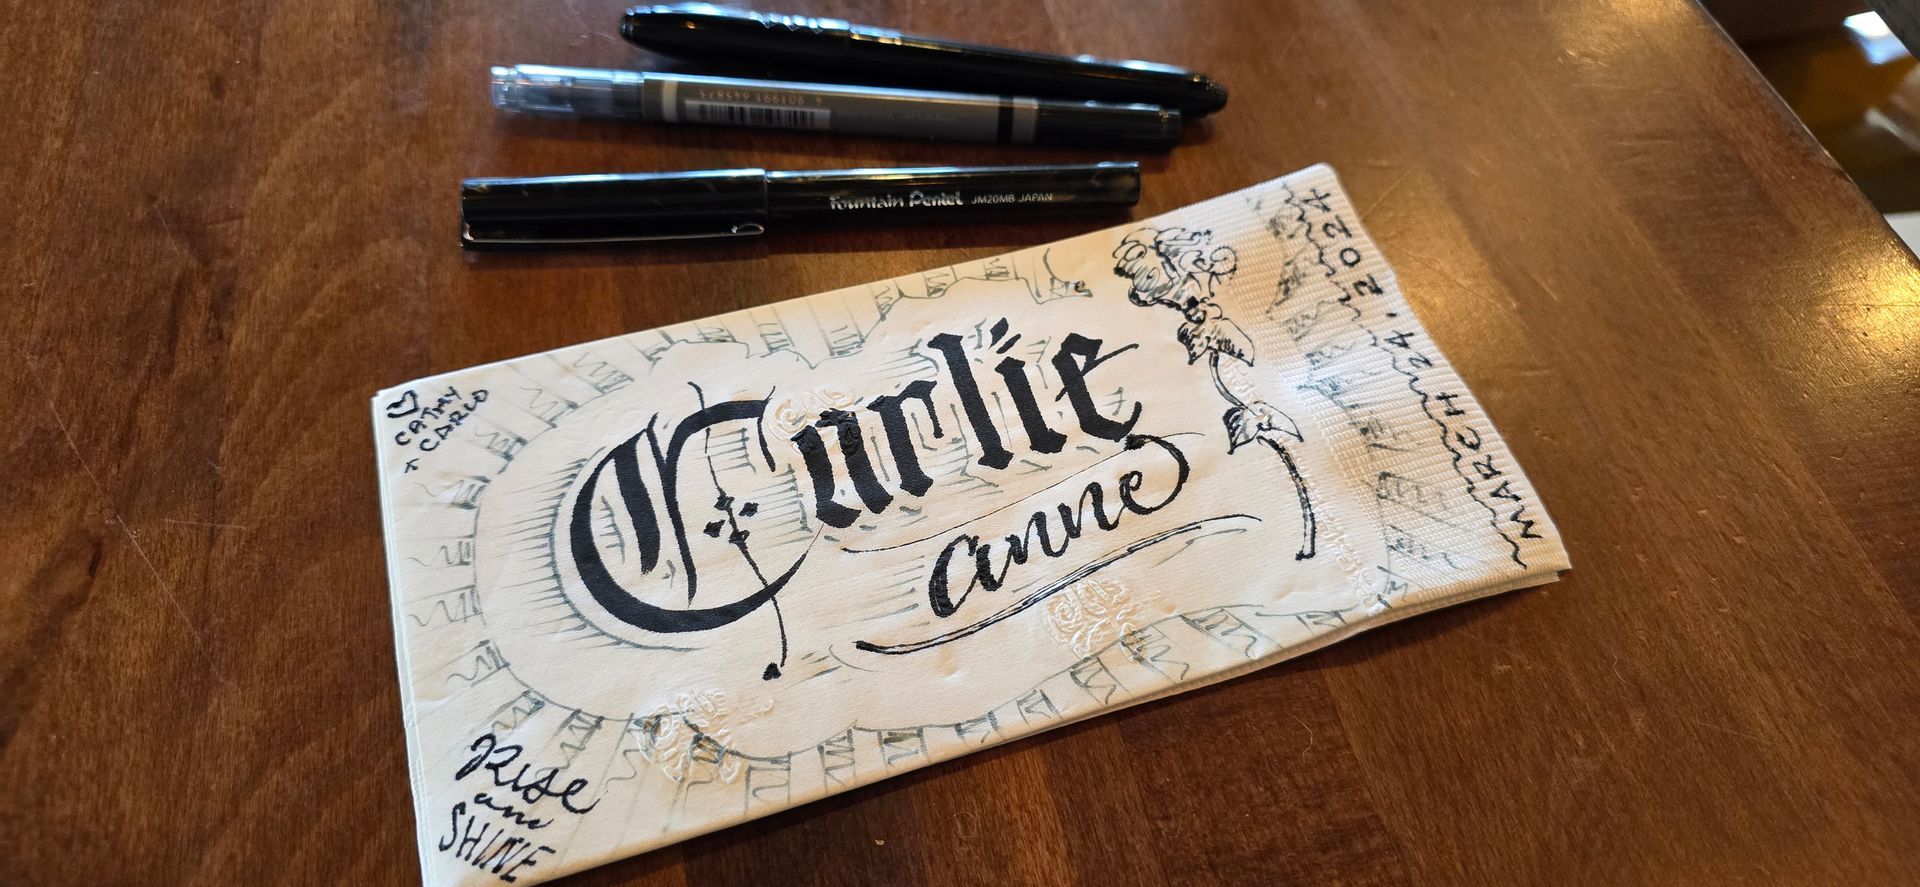 4 901991 645873
Fountain Pentel JM20MB JAPAN
MARCH 24, 2024
CATHY
CARLO
Carlie
anne
Rise
and
SHINE